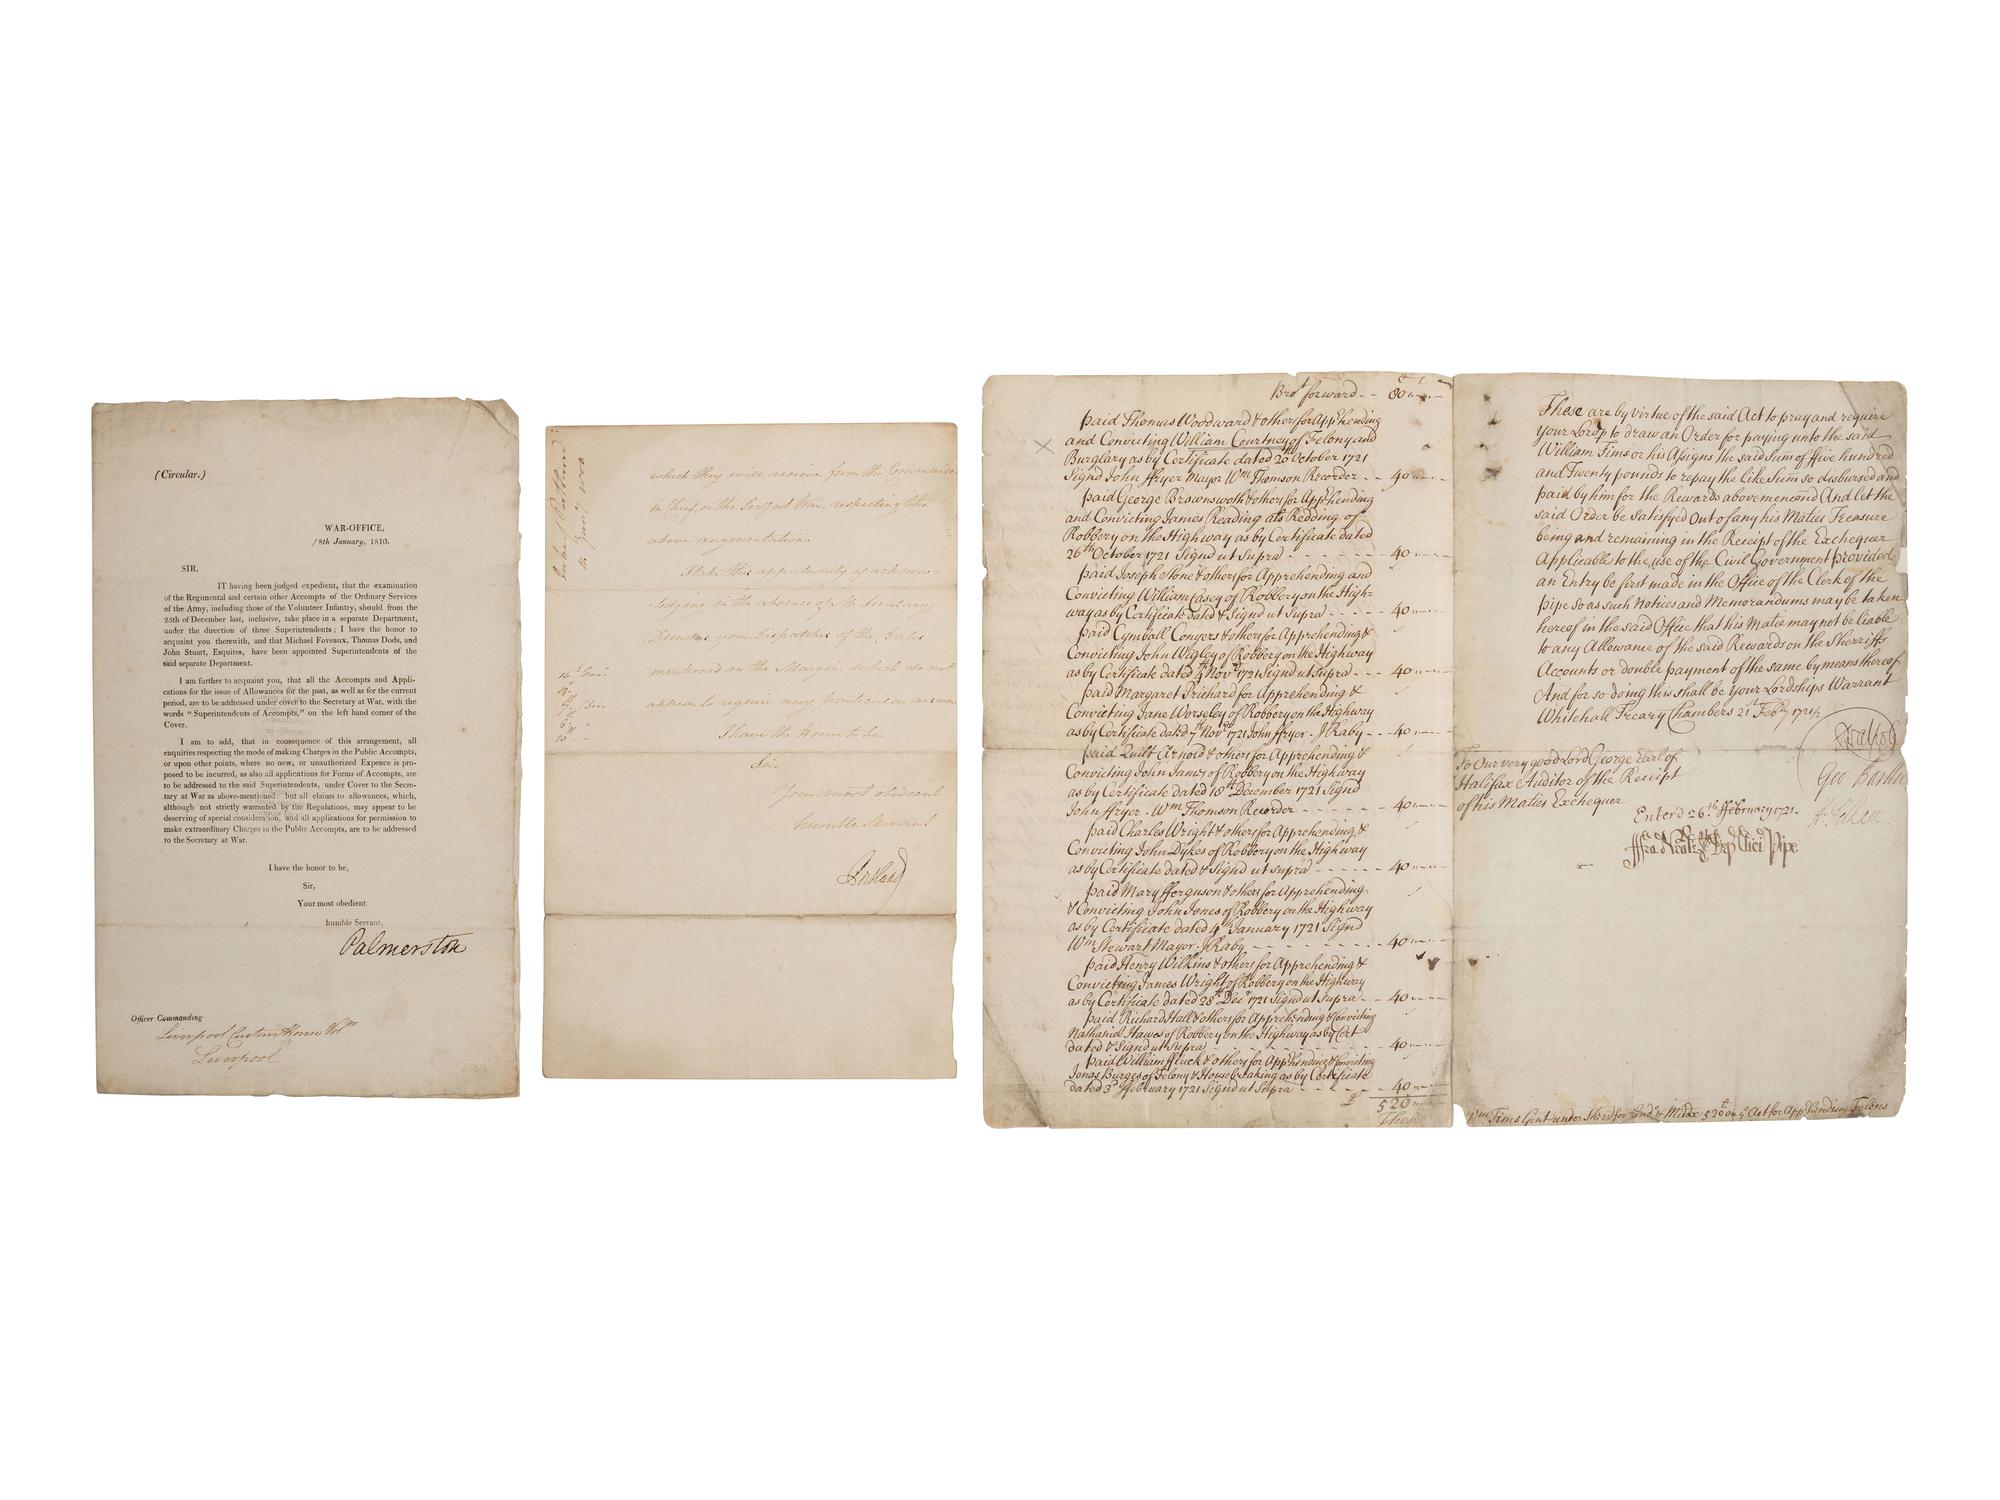 (Circular.)
WAR-OFFICE,
18th January, 1810.
SIR,
IT having been judged expedient, that the examination
of the Regimental and certain other Accompts of the Ordinary Services
of the Army, including those of the Volunteer Infantry, should from the
25th of December last, inclusive, take place in a separate Department,
under the direction of three Superintendents; I have the honor to
acquaint you therewith, and that Michael Foveaux, Thomas Dods, and
John Stuart, Esquires, have been appointed Superintendents of the
said separate Department.
I am further to acquaint you, that all the Accompts and Appli-
cations for the issue of Allowances for the past, as well as for the current
period, are to be addressed under cover to the Secretary at War, with the
words "Superintendents of Accompts," on the left hand corner of the
Cover.
I am to add, that in consequence of this arrangement, all
enquiries respecting the mode of making Charges in the Public Accompts,
or upon other points, where no new, or unauthorized Expence is pro-
posed to be incurred, as also all applications for Forms of Accompts, are
to be addressed to the said Superintendents, under Cover to the Secre-
tary at War as above-mentioned: but all claims to allowances, which,
although not strictly warranted by the Regulations, may appear to be
deserving of special consideration, and all applications for permission to
make extraordinary Charges in the Public Accompts, are to be addressed
to the Secretary at War.
I have the honor to be,
Sir,
Your most obedient,
humble Servant,
Palmerston
Officer Commanding
Liverpool Custom House Vol.rs
Liverpool
Duke of Portland
which they will receive from the Command
in Chief or the Secy at War, respecting the
above augmentation.
I take this opportunity of acknow-
ledging, in the absence of Mr Secretary
Dundas your Dispatches of the Dates
mentioned in the Margin, which do not
appear to require any particular answer
16th Novr
I have the Honor to be
Sir.
Your most obedient
humble Servant
Portland
Brot forward - - 80
paid Thomas Woodward & others for App'hending
and Convicting William Courtney of Felony and
Burglary as by Certificate dated 20th October 1721
Signd John ffryer Mayor Wm Thomson Recorder - - 40
paid George Brawnsworth & others for App'hending
and Convicting James Reading als Redding of
Robbery on the Highway as by Certificate dated
26th October 1721 Signd ut Supra - - - 40
paid Joseph Stone & others for Apprehending and
Convicting William Casey of Robbery on the High-
way as by Certificate dated & Signd ut Supra - - - 40
paid Cymball Conyers & others for Apprehending &
Convicting John Wigley of Robbery on the Highway
as by Certificate dated 4th Novr 1721 Signd ut Supra - - 40
paid Margaret Prichard for Apprehending &
Convicting Jane Worseley of Robbery on the Highway
as by Certificate dated 7th Novr 1721 John ffryer. J Raby - - 40
paid Quilt Arnold & others for Apprehending &
Convicting John James of Robbery on the Highway
as by Certificate dated 18th December 1721 Signd
John ffryer. Wm Thomson Recorder - - - 40
paid Charles Wright & others for Apprehending &
Convicting John Dykes of Robbery on the Highway
as by Certificate dated & Signd ut supra - - - 40
paid Mary fferguson & others for Apprehending
& Convicting John Jones of Robbery on the Highway
as by Certificate dated 4th January 1721 Signd
Wm Stewart Mayor. J Raby - - - 40
paid Henry Wilkins & others for Apprehending &
Convicting James Wright of Robbery on the Highway
as by Certificate dated 28th Decr 1721 Signd ut Supra - - 40
paid Richard Hall & others for Apprehending & Convicting
Nathaniel Hawes of Robbery on the Highway as by Cert
dated & Signd ut Supra - - - 40
paid William ffluck & others for App'hending & Convicting
Jonas Burges of Felony & Housebreaking as by Certificate
dated 3d ffebruary 1721 Signd ut Supra - - - 40
£ 520
These
These are by virtue of the said Act to pray and require
Your Lordp to draw an Order for paying unto the said
William Tims or his Assigns the said Sum of ffive hundred
and Twenty pounds to repay the like Sum so disbursed and
paid by him for the Rewards abovemencioned And let the
said Order be Satisfyed Out of any his Maties Treasure
being and remaining in the Receipt of the Exchequer
Applicable to the use of the Civil Government provided
an Entry be first made in the Office of the Clerk of the
pipe so as such Notices and Memorandums may be taken
hereof in the said Office that his Matie may not be liable
to any Allowance of the said Rewards on the Sherriffs
Accounts or double payment of the same by means thereof
And for so doing this shall be Your Lordships Warrant
Whitehall Treary Chambers 21st Febry 1721/2
RWalpole
Geo Baillie
To Our very good Lord George Earl of
Halifax Auditor of the Receipt
of his Maties Exchequer
Enterd 26th ffebruary 1721.
Wm Tims Gent under Sherif for Lond & Middx 520 on ye Act for App'hending Felons